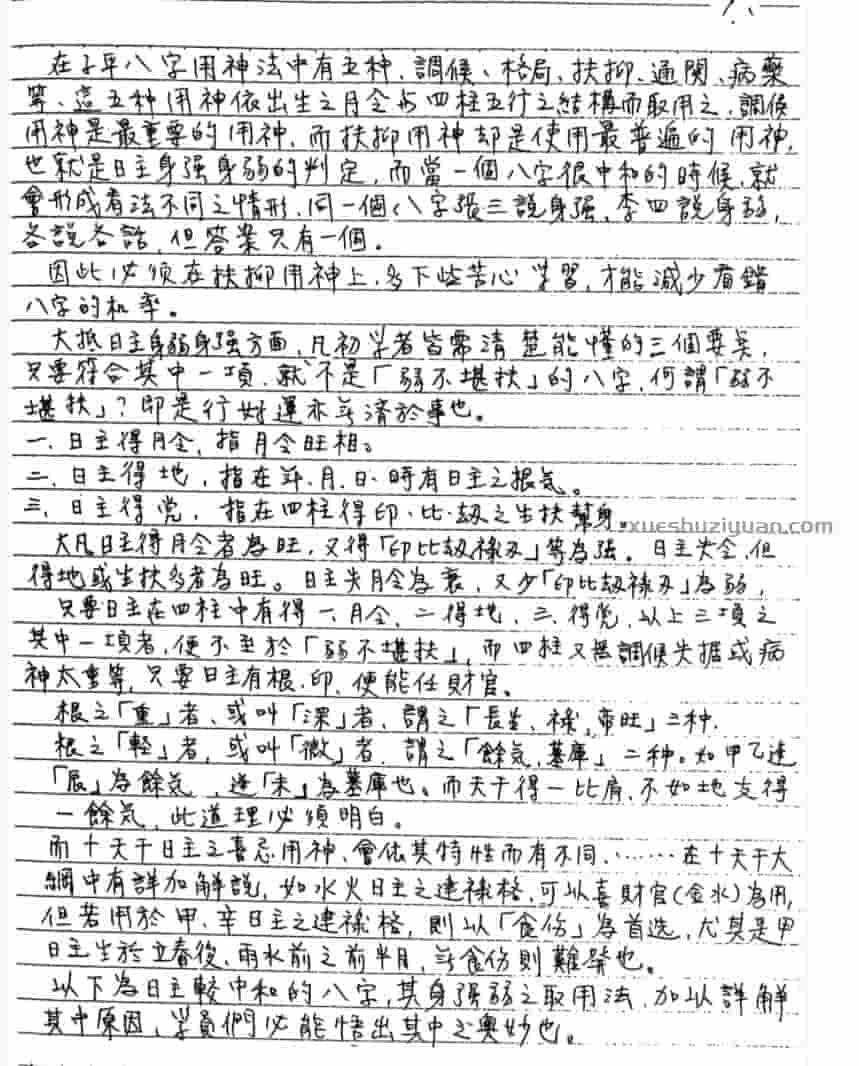 在子平八字用神法中有五种、調候、格局、扶抑、通関、病藥
等、這五种用神依出生之月令与四柱五行之結構而取用之、調候
用神是最重要的用神、而扶抑用神却是使用最普遍的用神，
也就是日主身强身弱的判定，而當一個八字很中和的時候，就
會形成看法不同之情形，同一個八字張三説身强、李四説身弱，
各説各話，但答案只有一個。
因此必須在扶抑用神上，多下些苦心学習，才能減少看錯
八字的机率。
大抵日主身弱身强方面，凡初学者皆需清楚能懂的三個要矣，
只要符合其中一項，就不是「弱不堪扶」的八字，何謂「弱不
堪扶」？即是行好運亦无濟於事也。
一、日主得月令，指月令旺相。
二、日主得地，指在年、月、日、時有日主之根気。
三、日主得党，指在四柱得印、比、劫之生扶幫身。
xueshuziyuan.com
大凡日主得月令者為旺，又得「印比劫祿刃」等為强。日主失令，但
得地或生扶多者為旺。日主失月令為衰，又少「印比劫祿刃」為弱，
只要日主在四柱中有得一、月令，二得地，三、得党，以上三項之
其中一項者，便不至於「弱不堪扶」，而四柱又無調候失据或病
神太重等，只要日主有根、印，便能任財官。
根之「重」者、或叫「深」者，謂之「長生、祿、帝旺」三种，
根之「軽」者，或叫「微」者，謂之「餘気、墓庫」二种。如甲乙逢
「辰」為餘気，逢「未」為墓庫也。而天干得一比肩，不如地支得
一餘気，此道理必須明白。
而十天干日主之喜忌用神，會依其特性而有不同，……在十天干大
綱中有詳加解説，如水火日主之建祿格，可以喜財官(金水)為用，
但若用於甲、辛日主之建祿格，則以「食伤」為首选，尤其是甲
日主生於立春後、雨水前之前半月，无食伤則難發也。
以下為日主較中和的八字，其身强弱之取用法，加以詳解
其中原因，学員們必能悟出其中之奥妙也。